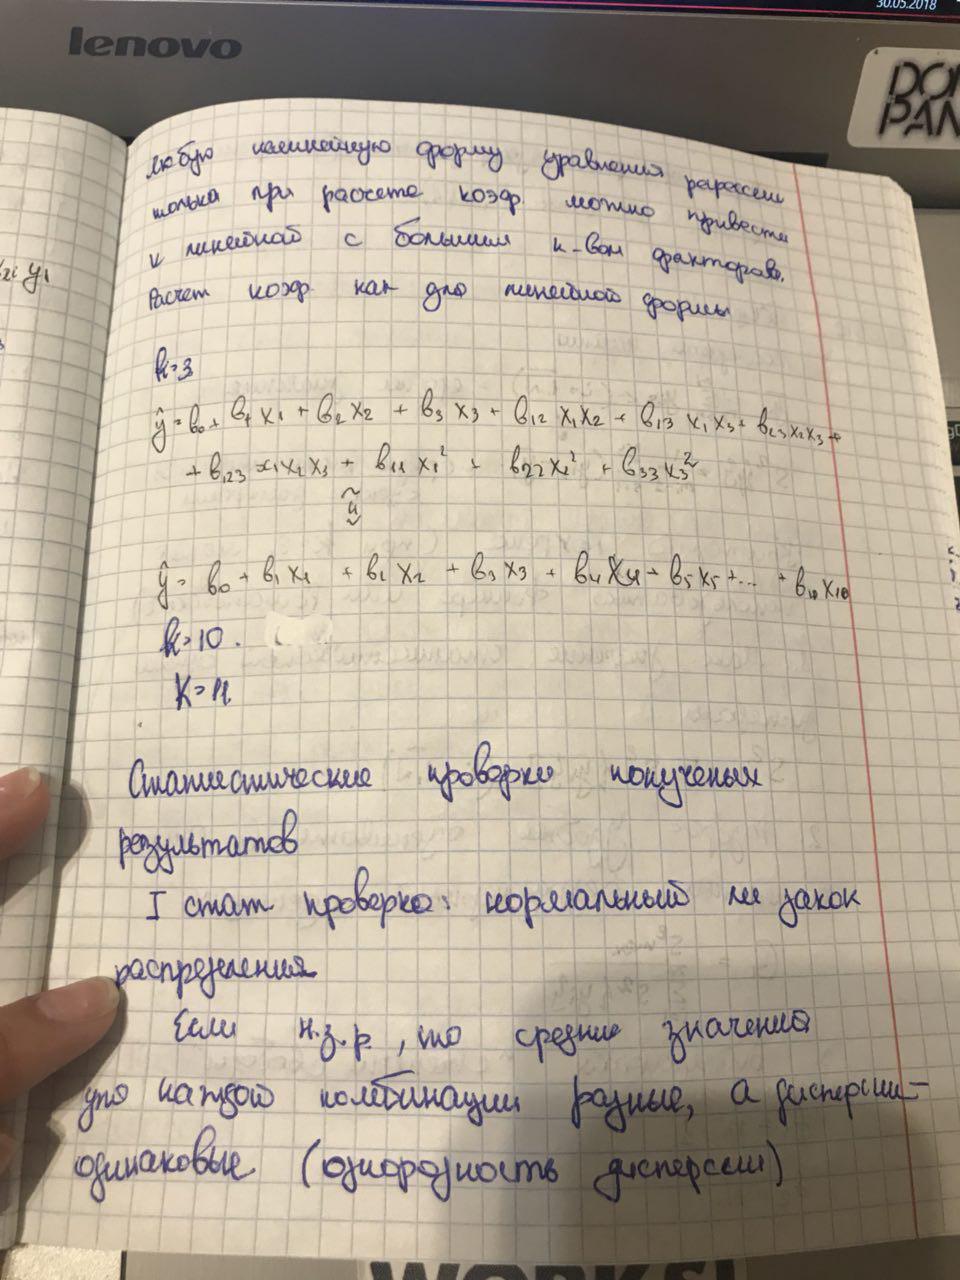 30.05.2018
lenovo
DON
PAN
любую нелинейную форму уравнения регрессии
только при расчете коэф можно привести
к линейной с большим к-вом факторов.
Расчет коэф как для линейной формы
k=3
ŷ = b₀ + b₁ x₁ + b₂ x₂ + b₃ x₃ + b₁₂ x₁x₂ + b₁₃ x₁x₃ + b₂₃ x₂x₃ +
+ b₁₂₃ x₁x₂x₃ + b₁₁ x₁² + b₂₂ x₂² + b₃₃ x₃²
ŷ = b₀ + b₁ x₁ + b₂ x₂ + b₃ x₃ + b₄ x₄ + b₅ x₅ + ... + b₁₀ x₁₀
k=10.
K=11
Статистические проверки полученых
результатов
I стат проверка: нормальный ли закон
распределения
Если н.з.р., то средние значения
для каждой комбинации разные, а дисперсии –
одинаковые (однородность дисперсии)
y₁